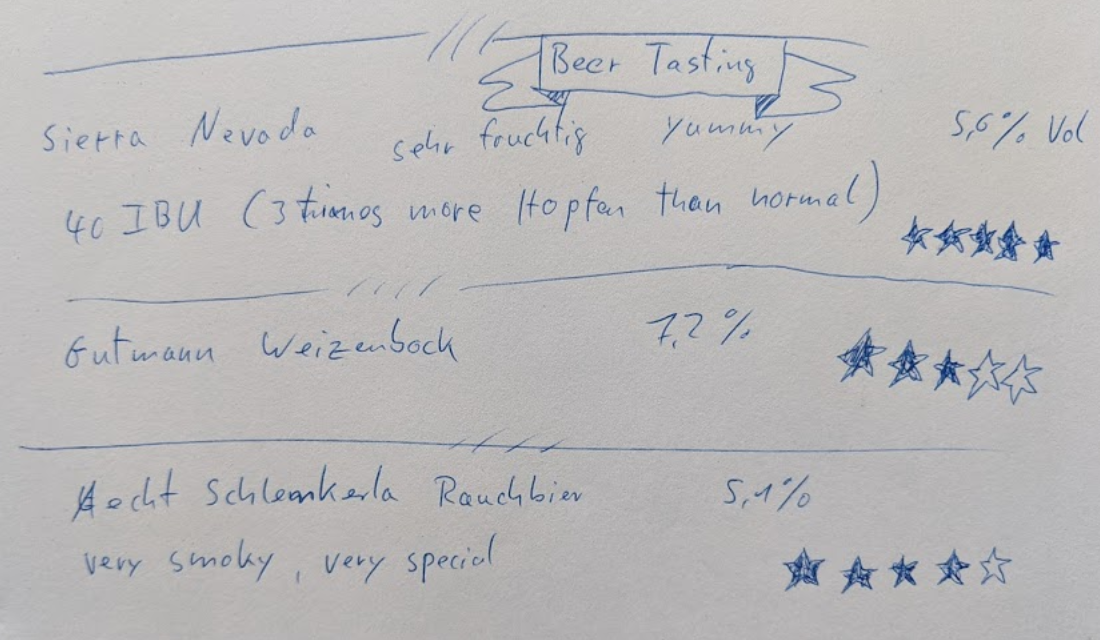 Beer Tasting
Sierra Nevada sehr fruchtig yummy 5,6% Vol
40 IBU (3 more Hopfen than normal)
Gutmann Weizenbock 7,2%
Aecht Schlenkerla Rauchbier 5,1%
very smoky, very special